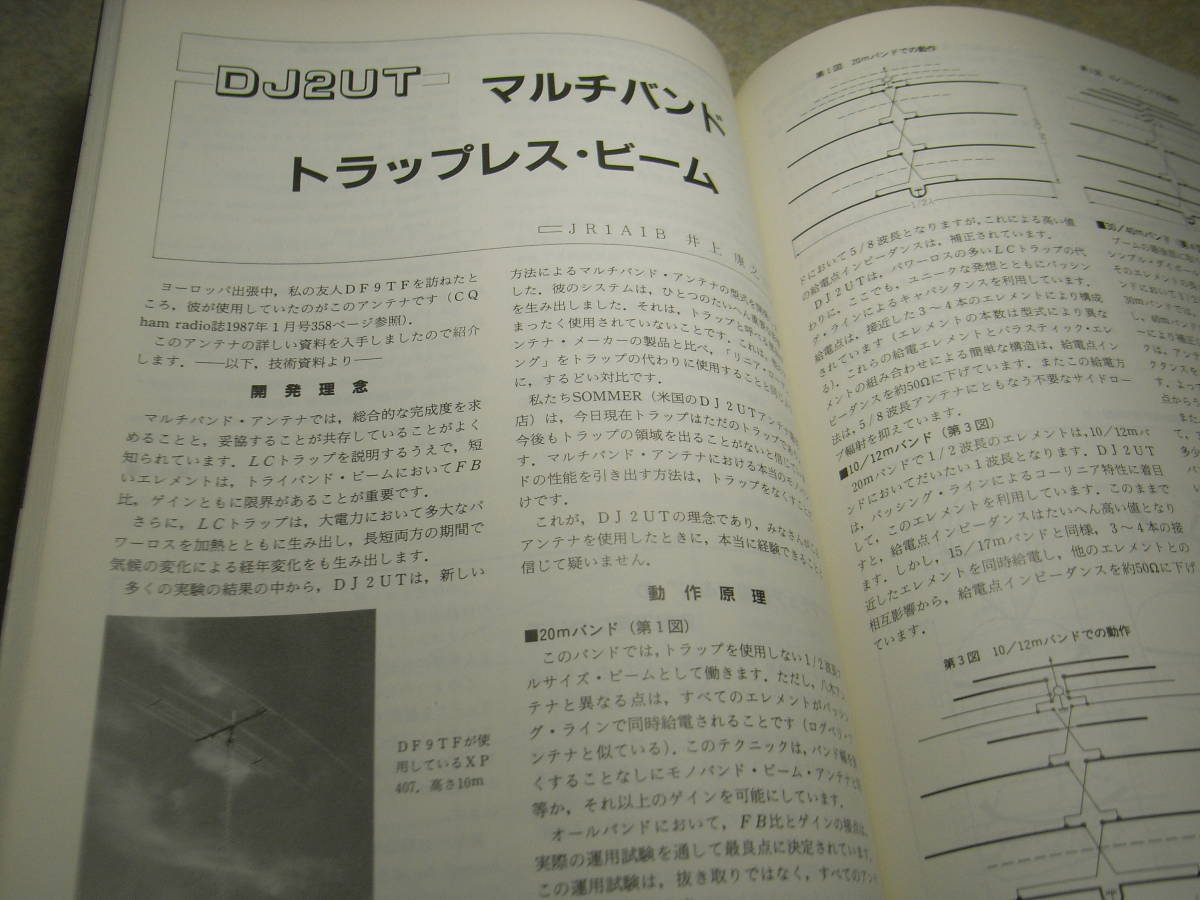 DJ2UT マルチバンド
トラップレス・ビーム
JR1AIB 井上 康
ヨーロッパ出張中，私の友人DF9TFを訪ねたと
ころ，彼が使用していたのがこのアンテナです（CQ
ham radio誌1987年1月号358ページ参照）．
このアンテナの詳しい資料を入手しましたので紹介
します．――以下，技術資料より――
開発理念
マルチバンド・アンテナでは，総合的な完成度を求
めることと，妥協することが共存していることがよく
知られています．LCトラップを説明するうえで，短
いエレメントは，トライバンド・ビームにおいてFB
比，ゲインともに限界があることが重要です．
さらに，LCトラップは，大電力において多大なパ
ワーロスを加熱とともに生み出し，長短両方の期間で
気候の変化による経年変化をも生み出します．
多くの実験の結果の中から，DJ2UTは，新しい
DF9TFが使
用しているXP
407．高さ16m
方法によるマルチバンド・アンテナの型式を
した．彼のシステムは，ひとつのたいへん重要な
を生み出しました．それは，トラップと呼べる
まったく使用されていないことです．これは，
ンテナ・メーカーの製品と比べ，「リニ
ング」をトラップの代わりに使用することと同じ
に，するどい対比です．
私たちSOMMER（米国のDJ2UTアンテナ
店）は，今日現在トラップはただのトラップであ
今後もトラップの領域を出ることがないと信じて
す．マルチバンド・アンテナにおける本当のモノバン
ドの性能を引き出す方法は，トラップをなくすこと
けです．
これが，DJ2UTの理念であり，みなさんが
アンテナを使用したときに，本当に経験できること
信じて疑いません．
動作原理
■20mバンド（第1図）
このバンドでは，トラップを使用しない1/2波長
ルサイズ・ビームとして働きます．ただし，八木
テナと異なる点は，すべてのエレメントがパッシン
グ・ラインで同時給電されることです（ログペリ
ンテナと似ている）．このテクニックは，バンド幅を
くすることなしにモノバンド・ビーム・アンテナと
等か，それ以上のゲインを可能にしています．
オールバンドにおいて，FB比とゲインの
実際の運用試験を通して最良点に決定されています．
この運用試験は，抜き取りではなく，すべてのアン
第1図 20mバンドでの動作
1/2λ
ドにおいて5/8波長となりますが，これによる高い値
の給電点インピーダンスは，補正されています．
DJ2UTは，パワーロスの多いLCトラップの代
わりに，ここでも，ユニークな発想とともにパッシン
グ・ラインによるキャパシタンスを利用しています．
給電点は，接近した3〜4本のエレメントにより構成
されています（エレメントの本数は型式により異な
る）．これらの給電エレメントとパラスティック・エレ
メントの組み合わせによる簡単な構造は，給電点イン
ピーダンスを約50Ωに下げています．またこの給電方
法は，5/8波長アンテナにともなう不要なサイドロー
ブ輻射を抑えています．
■10/12mバンド（第3図）
20mバンドで1/2波長のエレメントは，10/12mバ
ンドにおいてだいたい1波長となります．DJ2UT
は，パッシング・ラインによるコーリニア特性に着目
して，このエレメントを利用しています．このままで
すと，給電点インピーダンスはたいへん高い値となり
ます．しかし，15/17mバンドと同様，3〜4本の接
近したエレメントを同時給電し，他のエレメントとの
相互影響から，給電点インピーダンスを約50Ωに下げ
ています．
第3図 10/12mバンドでの動作
■30/40mバンド
ブームの
シンプル・ダイポー
そのエレメントの
ンドにおいて
30mバンド
し，40mバン
ーにより補正
クは，アン
クタンスを
す．よっ
点からう
また
て，
多少